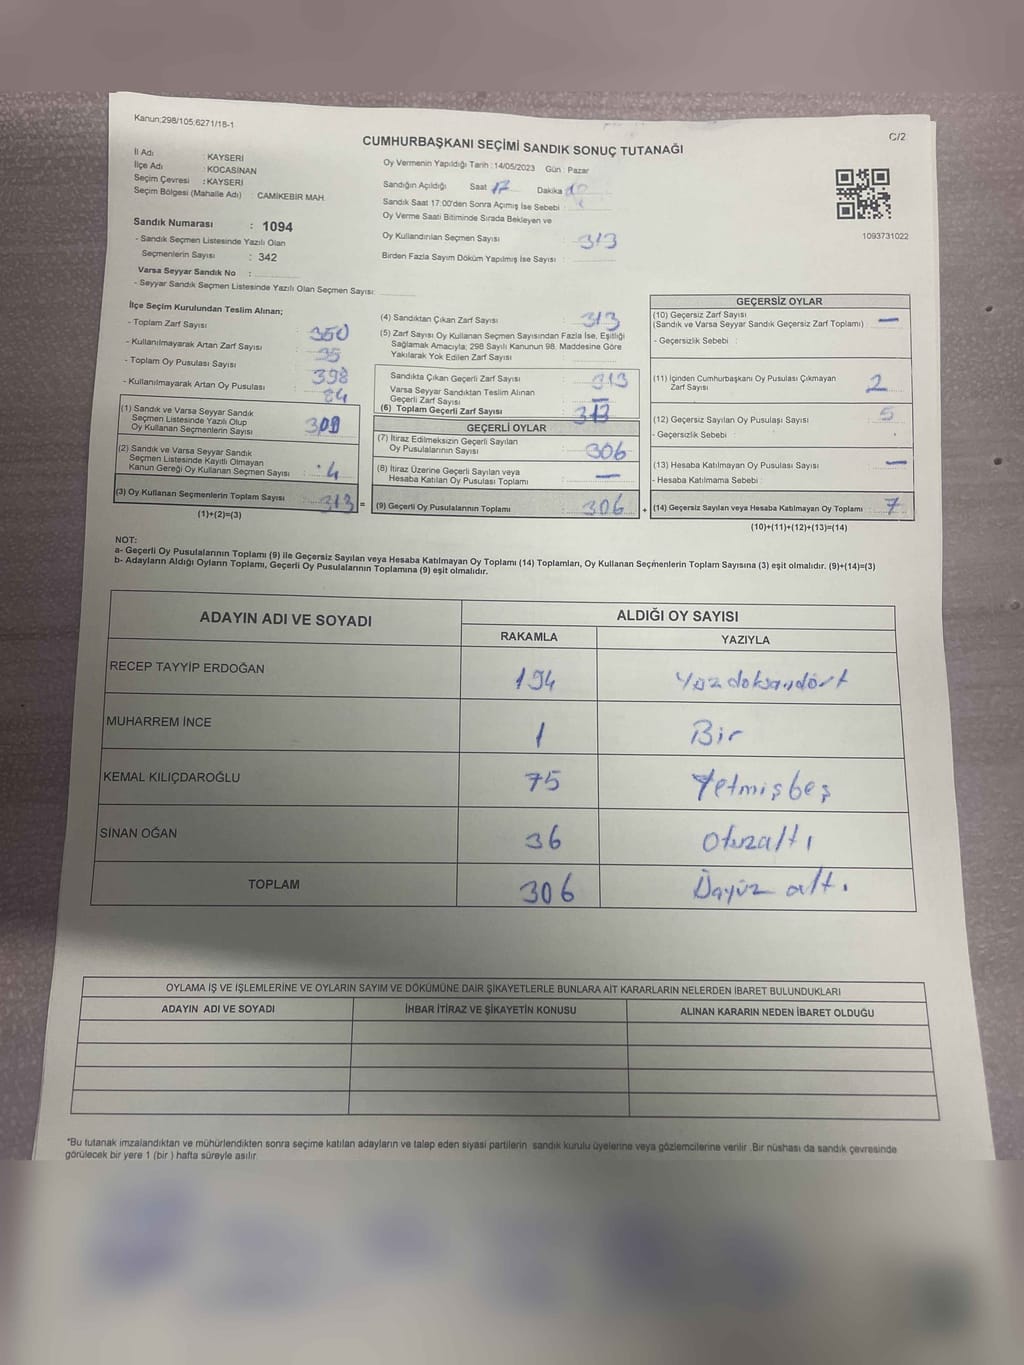 Kanun;298/105;6271/18-1
C/2
CUMHURBAŞKANI SEÇİMİ SANDIK SONUÇ TUTANAĞI
İl Adı : KAYSERİ
İlçe Adı : KOCASİNAN
Seçim Çevresi : KAYSERİ
Seçim Bölgesi (Mahalle Adı) : CAMİKEBİR MAH.
Sandık Numarası : 1094
- Sandık Seçmen Listesinde Yazılı Olan
Seçmenlerin Sayısı : 342
Varsa Seyyar Sandık No :
- Seyyar Sandık Seçmen Listesinde Yazılı Olan Seçmen Sayısı:
Oy Vermenin Yapıldığı Tarih : 14/05/2023 Gün : Pazar
Sandığın Açıldığı Saat 17 Dakika
Sandık Saat 17:00'den Sonra Açımış İse Sebebi :
Oy Verme Saati Bitiminde Sırada Bekleyen ve
Oy Kullandırılan Seçmen Sayısı : 313
Birden Fazla Sayım Döküm Yapılmış İse Sayısı :
1093731022
İlçe Seçim Kurulundan Teslim Alınan;
- Toplam Zarf Sayısı : 350
- Kullanılmayarak Artan Zarf Sayısı : 35
- Toplam Oy Pusulası Sayısı : 398
- Kullanılmayarak Artan Oy Pusulası : 84
(1) Sandık ve Varsa Seyyar Sandık
Seçmen Listesinde Yazılı Olup
Oy Kullanan Seçmenlerin Sayısı : 309
(2) Sandık ve Varsa Seyyar Sandık
Seçmen Listesinde Kayıtlı Olmayan
Kanun Gereği Oy Kullanan Seçmen Sayısı : 4
(3) Oy Kullanan Seçmenlerin Toplam Sayısı : 313 =
(1)+(2)=(3)
(4) Sandıktan Çıkan Zarf Sayısı : 313
(5) Zarf Sayısı Oy Kullanan Seçmen Sayısından Fazla İse, Eşitliği
Sağlamak Amacıyla; 298 Sayılı Kanunun 98. Maddesine Göre
Yakılarak Yok Edilen Zarf Sayısı :
Sandıkta Çıkan Geçerli Zarf Sayısı : 313
Varsa Seyyar Sandıktan Teslim Alınan
Geçerli Zarf Sayısı : —
(6) Toplam Geçerli Zarf Sayısı : 313
GEÇERLİ OYLAR
(7) İtiraz Edilmeksizin Geçerli Sayılan
Oy Pusulalarının Sayısı : 306
(8) İtiraz Üzerine Geçerli Sayılan veya
Hesaba Katılan Oy Pusulası Toplamı : —
(9) Geçerli Oy Pusulalarının Toplamı : 306 +
GEÇERSİZ OYLAR
(10) Geçersiz Zarf Sayısı : —
(Sandık ve Varsa Seyyar Sandık Geçersiz Zarf Toplamı)
- Geçersizlik Sebebi :
(11) İçinden Cumhurbaşkanı Oy Pusulası Çıkmayan
Zarf Sayısı : 2
(12) Geçersiz Sayılan Oy Pusulası Sayısı : 5
- Geçersizlik Sebebi :
(13) Hesaba Katılmayan Oy Pusulası Sayısı : —
- Hesaba Katılmama Sebebi :
(14) Geçersiz Sayılan veya Hesaba Katılmayan Oy Toplamı : 7
(10)+(11)+(12)+(13)=(14)
NOT:
a- Geçerli Oy Pusulalarının Toplamı (9) ile Geçersiz Sayılan veya Hesaba Katılmayan Oy Toplamı (14) Toplamları, Oy Kullanan Seçmenlerin Toplam Sayısına (3) eşit olmalıdır. (9)+(14)=(3)
b- Adayların Aldığı Oyların Toplamı, Geçerli Oy Pusulalarının Toplamına (9) eşit olmalıdır.
ADAYIN ADI VE SOYADI
ALDIĞI OY SAYISI
RAKAMLA YAZIYLA
RECEP TAYYİP ERDOĞAN 194 Yüzdoksandört
MUHARREM İNCE 1 Bir
KEMAL KILIÇDAROĞLU 75 Yetmişbeş
SİNAN OĞAN 36 Otuzaltı
TOPLAM 306 Üçyüz altı
OYLAMA İŞ VE İŞLEMLERİNE VE OYLARIN SAYIM VE DÖKÜMÜNE DAİR ŞİKAYETLERLE BUNLARA AİT KARARLARIN NELERDEN İBARET BULUNDUKLARI
ADAYIN ADI VE SOYADI İHBAR İTİRAZ VE ŞİKAYETİN KONUSU ALINAN KARARIN NEDEN İBARET OLDUĞU
*Bu tutanak imzalandıktan ve mühürlendikten sonra seçime katılan adayların ve talep eden siyasi partilerin sandık kurulu üyelerine veya gözlemcilerine verilir .Bir nüshası da sandık çevresinde
görülecek bir yere 1 (bir ) hafta süreyle asılır.